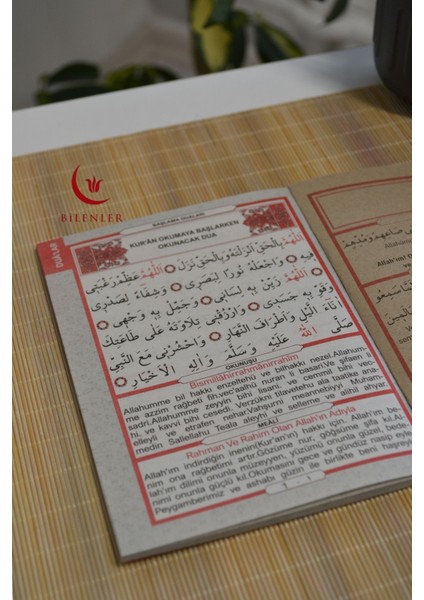 BİLENLER
BAŞLAMA DUALARI
DUALAR
KUR'ÂN OKUMAYA BAŞLARKEN
OKUNACAK DUA
اَللّٰهُمَّ بِالْحَقِّ اَنْزَلْتَهُ وَبِالْحَقِّ نَزَلَ اَللّٰهُمَّ عَظِّمْ رَغْبَتِي
فِيهِ وَاجْعَلْهُ نُورًا لِبَصَرِي وَشِفَاءً لِصَدْرِي
اَللّٰهُمَّ زَيِّنْ بِهِ لِسَانِي وَجَمِّلْ بِهِ وَجْهِي
وَقَوِّ بِهِ جَسَدِي وَارْزُقْنِي تِلَاوَتَهُ عَلَى طَاعَتِكَ
اٰنَاءَ الَّيْلِ وَاَطْرَافَ النَّهَارِ وَاحْشُرْنِي مَعَ النَّبِيِّ
صَلَّى اللّٰهُ عَلَيْهِ وَسَلَّمَ وَاٰلِهِ الْاَخْيَارِ
OKUNUŞU
Bismillâhirrahmânirrahîm
Allahumme bil hakkı enzeltehu ve bilhakkı nezel.Allahum-
me azzim rağbeti fih.vec'alhü nuran li basari.Ve şifaen li
sadri.Allahumme zeyyin bihi lisani, ve cemmil bihi vec-
hi, ve kavvi bihi cesedi, verzukni tilavetehu ala taatike ana-
elleyli ve etrafen nehar.Vahşurni meannebiyyi Muham-
medin Sallellahu Teala aleyhi ve selleme ve alihil ahyar.
MEÂLİ
Rahman Ve Rahim Olan Allah'ın Adıyla
Allah'ım indirdiğin inenin(Kur'an'ın) hakkı için. Allah'ım be-
nim ona rağbetimi artır.Gözüme nur, göğsüme şifa kıl.Al-
lah'ım dilimi onunla müzeyyen, yüzümü onunla güzel, bede-
nimi onunla güçlü kıl.Okumasını gece ve gündüz nasip eyle
Peygamberimiz ve ashabı güzin ile birlikte beni haşreyle
- 1 -